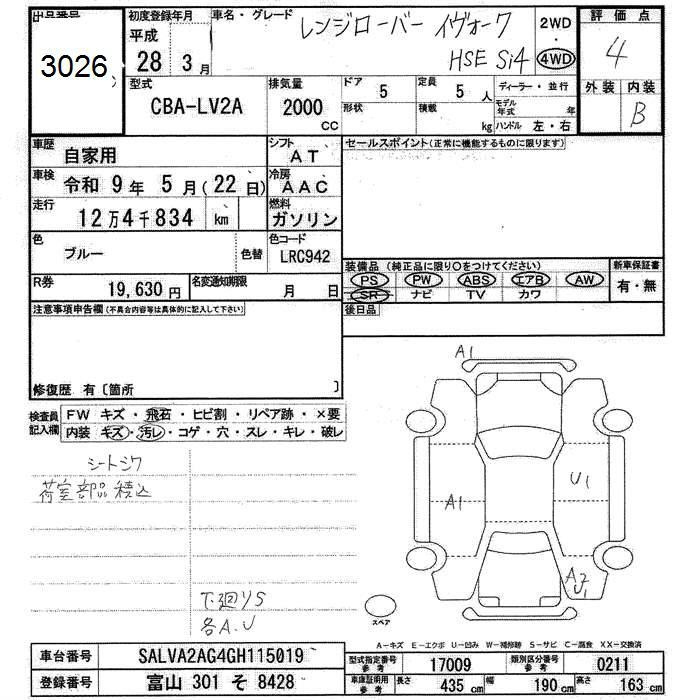 出品番号
3026
初度登録年月
平成
28 3月
車名・グレード
レンジローバー イヴォーク
HSE Si4
2WD
・
4WD
評価点
4
外装 内装
B
型式
CBA-LV2A
排気量
2000
cc
ドア
5
定員
5 人
形状
積載
kg
ディーラー・並行
モデル年式 年
ハンドル 左・右
車歴
自家用
シフト
AT
車検
令和 9年 5月(22日)
冷房
AAC
走行
12万4千834 km
燃料
ガソリン
色
ブルー
色替
色コード
LRC942
R券
19,630円
名変通知期限
月 日
セールスポイント(正常に機能するものに限ります)
装備品(純正品に限り○をつけてください)
PS PW ABS エアB AW
SR ナビ TV カワ
新車保証書
有・無
後日品
注意事項申告欄(不具合内容等は具体的に記入して下さい)
修復歴 有〔箇所 〕
検査員記入欄
FW キズ・飛石・ヒビ割・リペア跡・×要
内装 キズ・汚レ・コゲ・穴・スレ・キレ・破レ
シートシワ
荷室部品積込
下廻りS
各A.U
A1
A1
U1
A2
U1
スペア
A-キズ E-エクボ U-凹み W-補修跡 S-サビ C-腐食 XX-交換済
車台番号
SALVA2AG4GH115019
登録番号
富山 301 そ 8428
型式指定番号
参考
17009
類別区分番号
参考
0211
車庫証明用
参考
長さ
435cm
幅
190cm
高さ
163cm